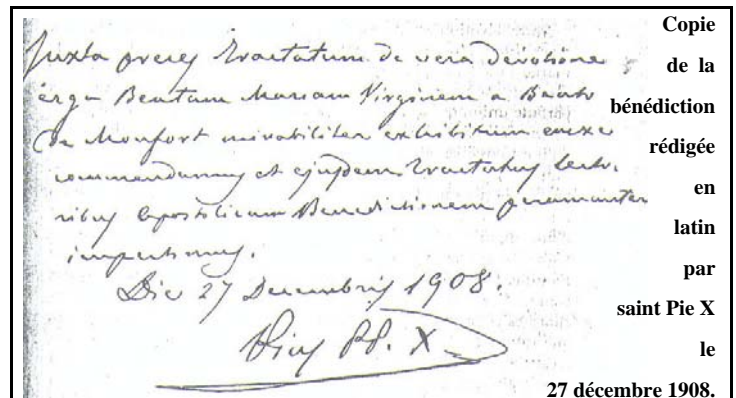 Juxta preces Tractatum de vera devotione
erga Beatam Mariam Virginem a Beato
De Monfort mirabiliter exhibitum enixe
commendamus et ejusdem Tractatus lecto-
ribus Apostolicam Benedictionem peramanter
impertimus.
Die 27 Decembris 1908.
Pius PP. X
Copie
de la
bénédiction
rédigée
en
latin
par
saint Pie X
le
27 décembre 1908.